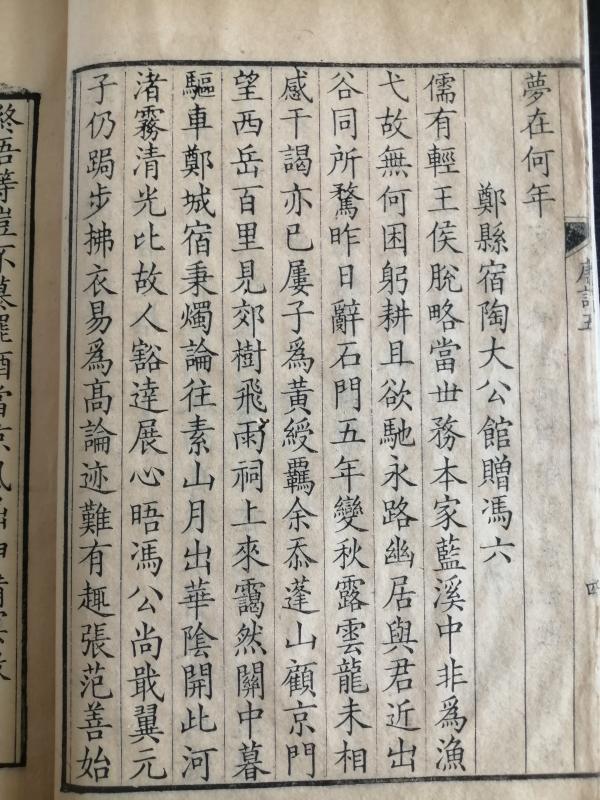 唐詩五
四
夢在何年
鄭縣宿陶大公館贈馮六
儒有輕王侯脫略當世務本家藍溪中非為漁
弋故無何困躬耕且欲馳永路幽居與君近出
谷同所騖昨日辭石門五年變秋露雲龍未相
感干謁亦已屢子為黃綬羈余忝蓬山顧京門
望西岳百里見郊樹飛雨祠上來靄然關中暮
驅車鄭城宿秉燭論往素山月出華陰開此河
渚霧清光比故人豁達展心晤馮公尚戢翼元
子仍跼步拂衣易為高論迹難有趣張范善始
終吾等豈不慕罷酒當